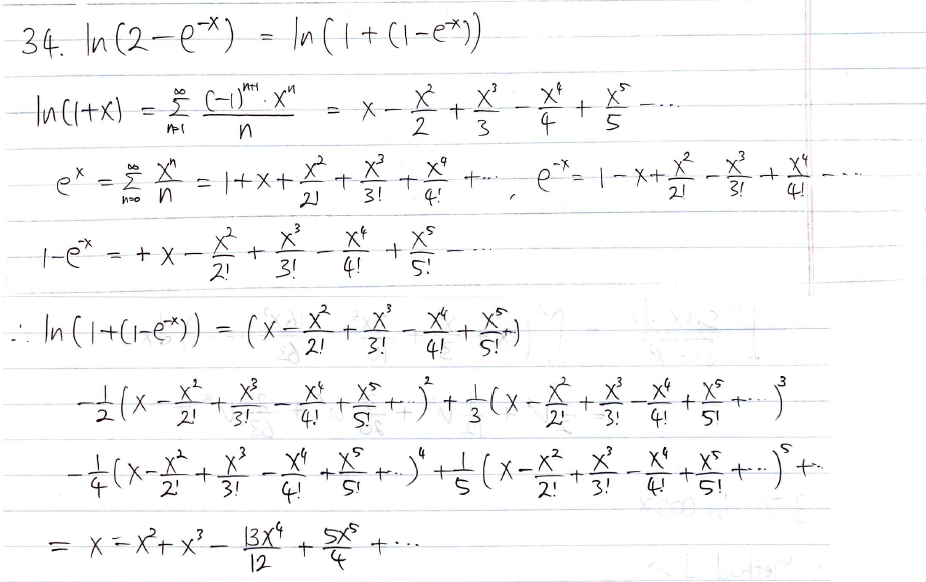 34. ln(2-e^{-x}) = ln(1+(1-e^{-x}))
ln(1+x) = \sum_{n=1}^{∞} \frac{(-1)^{n+1}·x^n}{n} = x - \frac{x^2}{2} + \frac{x^3}{3} - \frac{x^4}{4} + \frac{x^5}{5} - ...
e^x = \sum_{n=0}^{∞} \frac{x^n}{n} = 1+x+\frac{x^2}{2!} + \frac{x^3}{3!} + \frac{x^4}{4!} + ... , e^{-x} = 1-x+\frac{x^2}{2!} - \frac{x^3}{3!} + \frac{x^4}{4!} - ...
1-e^{-x} = +x - \frac{x^2}{2!} + \frac{x^3}{3!} - \frac{x^4}{4!} + \frac{x^5}{5!} - ...
∴ ln(1+(1-e^{-x})) = (x - \frac{x^2}{2!} + \frac{x^3}{3!} - \frac{x^4}{4!} + \frac{x^5}{5!} + )
-\frac{1}{2}(x - \frac{x^2}{2!} + \frac{x^3}{3!} - \frac{x^4}{4!} + \frac{x^5}{5!} + ...)^2 + \frac{1}{3}(x - \frac{x^2}{2!} + \frac{x^3}{3!} - \frac{x^4}{4!} + \frac{x^5}{5!} + ...)^3
-\frac{1}{4}(x - \frac{x^2}{2!} + \frac{x^3}{3!} - \frac{x^4}{4!} + \frac{x^5}{5!} + ...)^4 + \frac{1}{5}(x - \frac{x^2}{2!} + \frac{x^3}{3!} - \frac{x^4}{4!} + \frac{x^5}{5!} + ...)^5 + ...
= x - x^2 + x^3 - \frac{13x^4}{12} + \frac{5x^5}{4} + ...